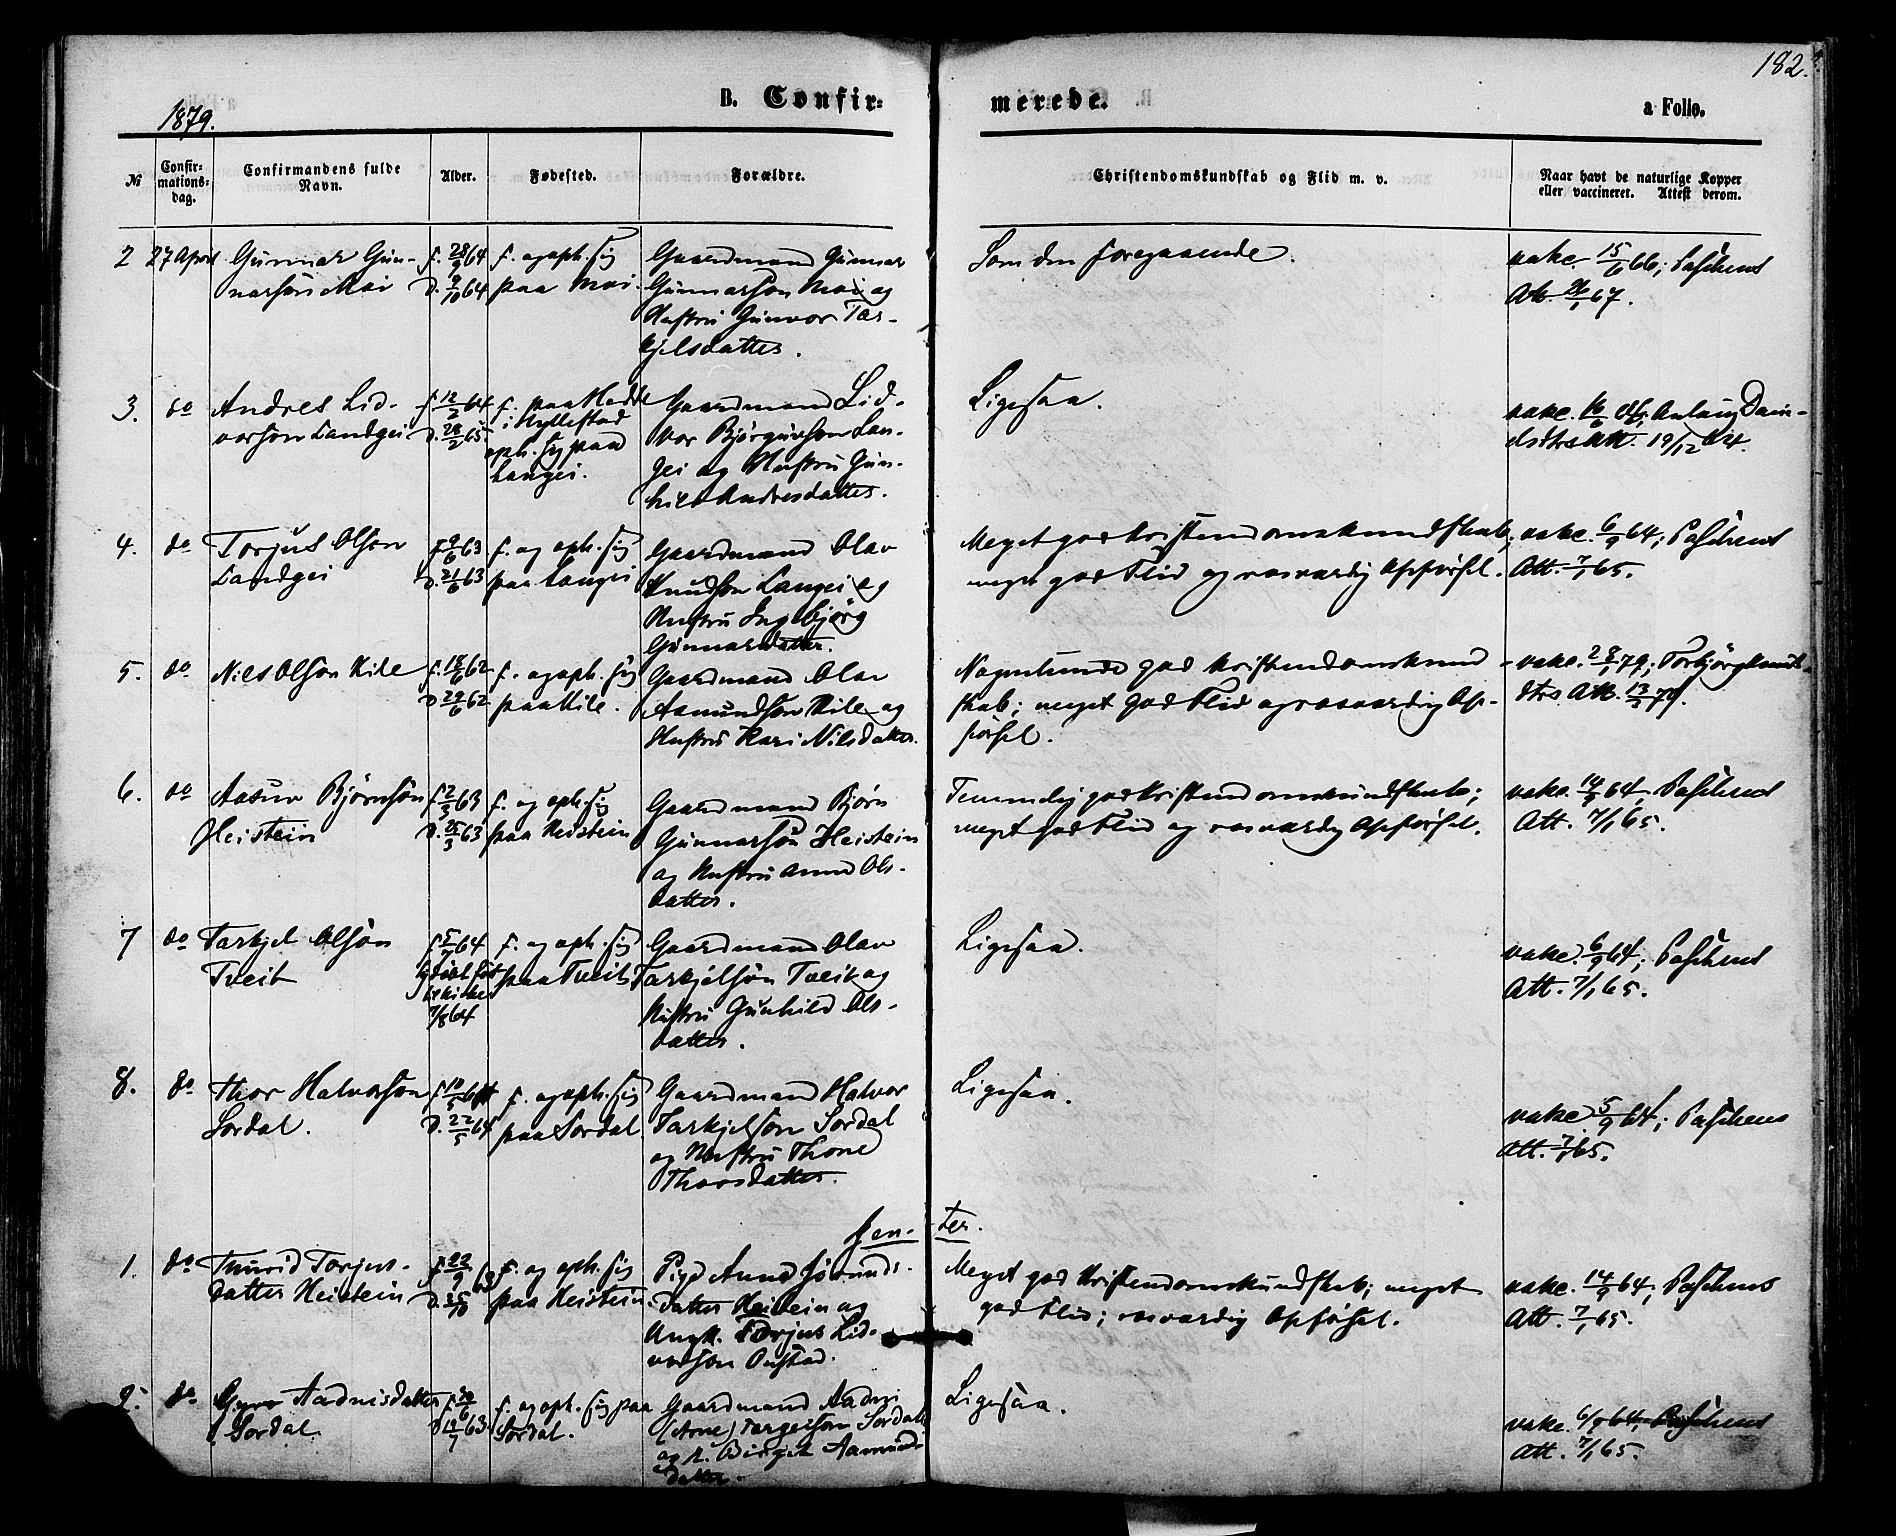 182.
1879.
B. Confir=
merede.
a Folio.
№
Confir=
mations=
dag.
Confirmandens fulde
Navn.
Alder.
Fødested.
Forældre.
Christendomskundskab og Flid m. v.
Naar havt de naturlige Kopper
eller vaccineret. Attest derom.
2
27 April
Gunnar Gun-
narson Moi
f. 28/9 64
d. 9/10 64
f. og oph. sig
paa Moi.
Gaardmand Gunnar
Gunnarson Moi og
Hustru Gunvor Tar-
kjelsdatter.
Som den foregaaende.
vakc. 15/6 66; Paschens
Att. 67.
3.
do
Andres Lid-
vorson Landgei
f. 12/2 64
d. 28/2 65
f. paa
i Hyllestad
oph. sig paa
Langei.
Gaardmand Lid-
vor Bjørgunson Lan-
gei og Hustru Gun-
hild Andresdatter.
Ligesaa.
vakc. Dani-
elsdtrs Att. 19/12
4.
do
Torjus Olson
Landgei
f. 9/6 63
d. 21/6 63
f. og oph. sig
paa Langei
Gaardmand Olav
Knudson Langei og
Hustru Ingebjörg
Gunnarsdatter.
Meget god Kristendomskundskab;
meget god Flid og rosværdig Opførsel.
vakc. 6/9 64; Paschens
Att. 7/1 65.
5.
do
Nils Olson Kile
f. 18/6 62
d. 29/6 62
f. og oph. sig
paa Kile.
Gaardmand Olav
Aamundson Kile og
Hustru Kari Nilsdatter.
Nogenlunde god Kristendomskund-
skab; meget god Flid og rosværdig Op-
førsel.
vakc. 79; Torbjörg Knuts-
dtrs Att. 79.
6.
do
Aasuv Björnson
Heistein
f. 2/3 63
d. 25/3 63
f. og oph. sig
paa Heistein
Gaardmand Björn
Gunnarson Heistein
og Hustru Anne Ols-
datter.
Temmelig god Kristendomskundskab;
meget god Flid og rosværdig Opførsel.
vakc. 14/9 64; Paschens
Att. 7/1 65.
7
do
Tarkjel Olson
Tveit
f. 64
7/8 64
f. og oph. sig
paa Tveit
Gaardmand Olav
Tarkjelson Tveit og
Hustru Gunhild Ols-
datter.
Ligesaa.
vakc. 6/9 64; Paschens
Att. 7/1 65.
8.
do
Thor Halvorson
Sordal.
f. 10/5 64
d. 22/5 64
f. og oph. sig
paa Sordal
Gaardmand Halvor
Tarkjelson Sordal
og Hustru Thone
Thorsdatter.
Ligesaa.
vakc. 5/9 64; Paschens
Att. 7/1 65.
Jen-
ter.
1.
do
Thurid Torjus-
datter Heistein
f. 22/9 63
d. 25/10
f. og oph. sig
paa Heistein.
Pige Anne Jörunds-
datter Heistein og
Ungk. Torjus Lid-
vorson Onstad.
Meget god Kristendomskundskab; meget
god Flid; rosværdig Opførsel.
vakc. 14/9 64; Paschens
Att. 7/1 65.
2.
do
Gyro Aadnisdatter
Sordal
d. 19/7 63
f. og oph. sig paa
Sordal.
Gaardmand Aadni
(Arne) Targerson Sordal
og H. Birgit Aamunds-
datter.
Ligesaa.
vakc. 6/9 64; Paschens
Att. 7/1 65.